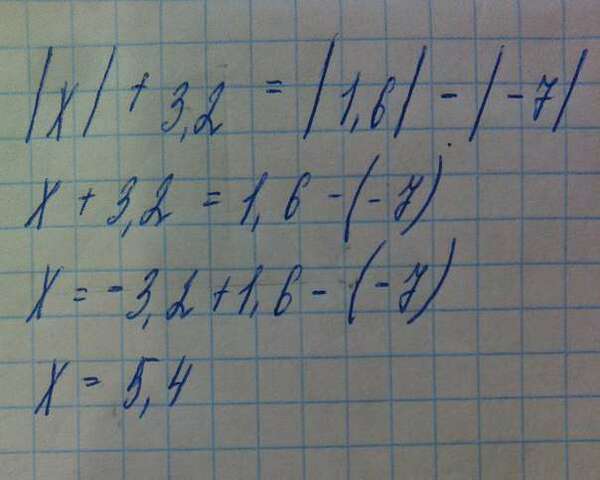 |x| + 3,2 = |1,6| - |-7|
x + 3,2 = 1,6 - (-7)
x = -3,2 + 1,6 - (-7)
x = 5,4